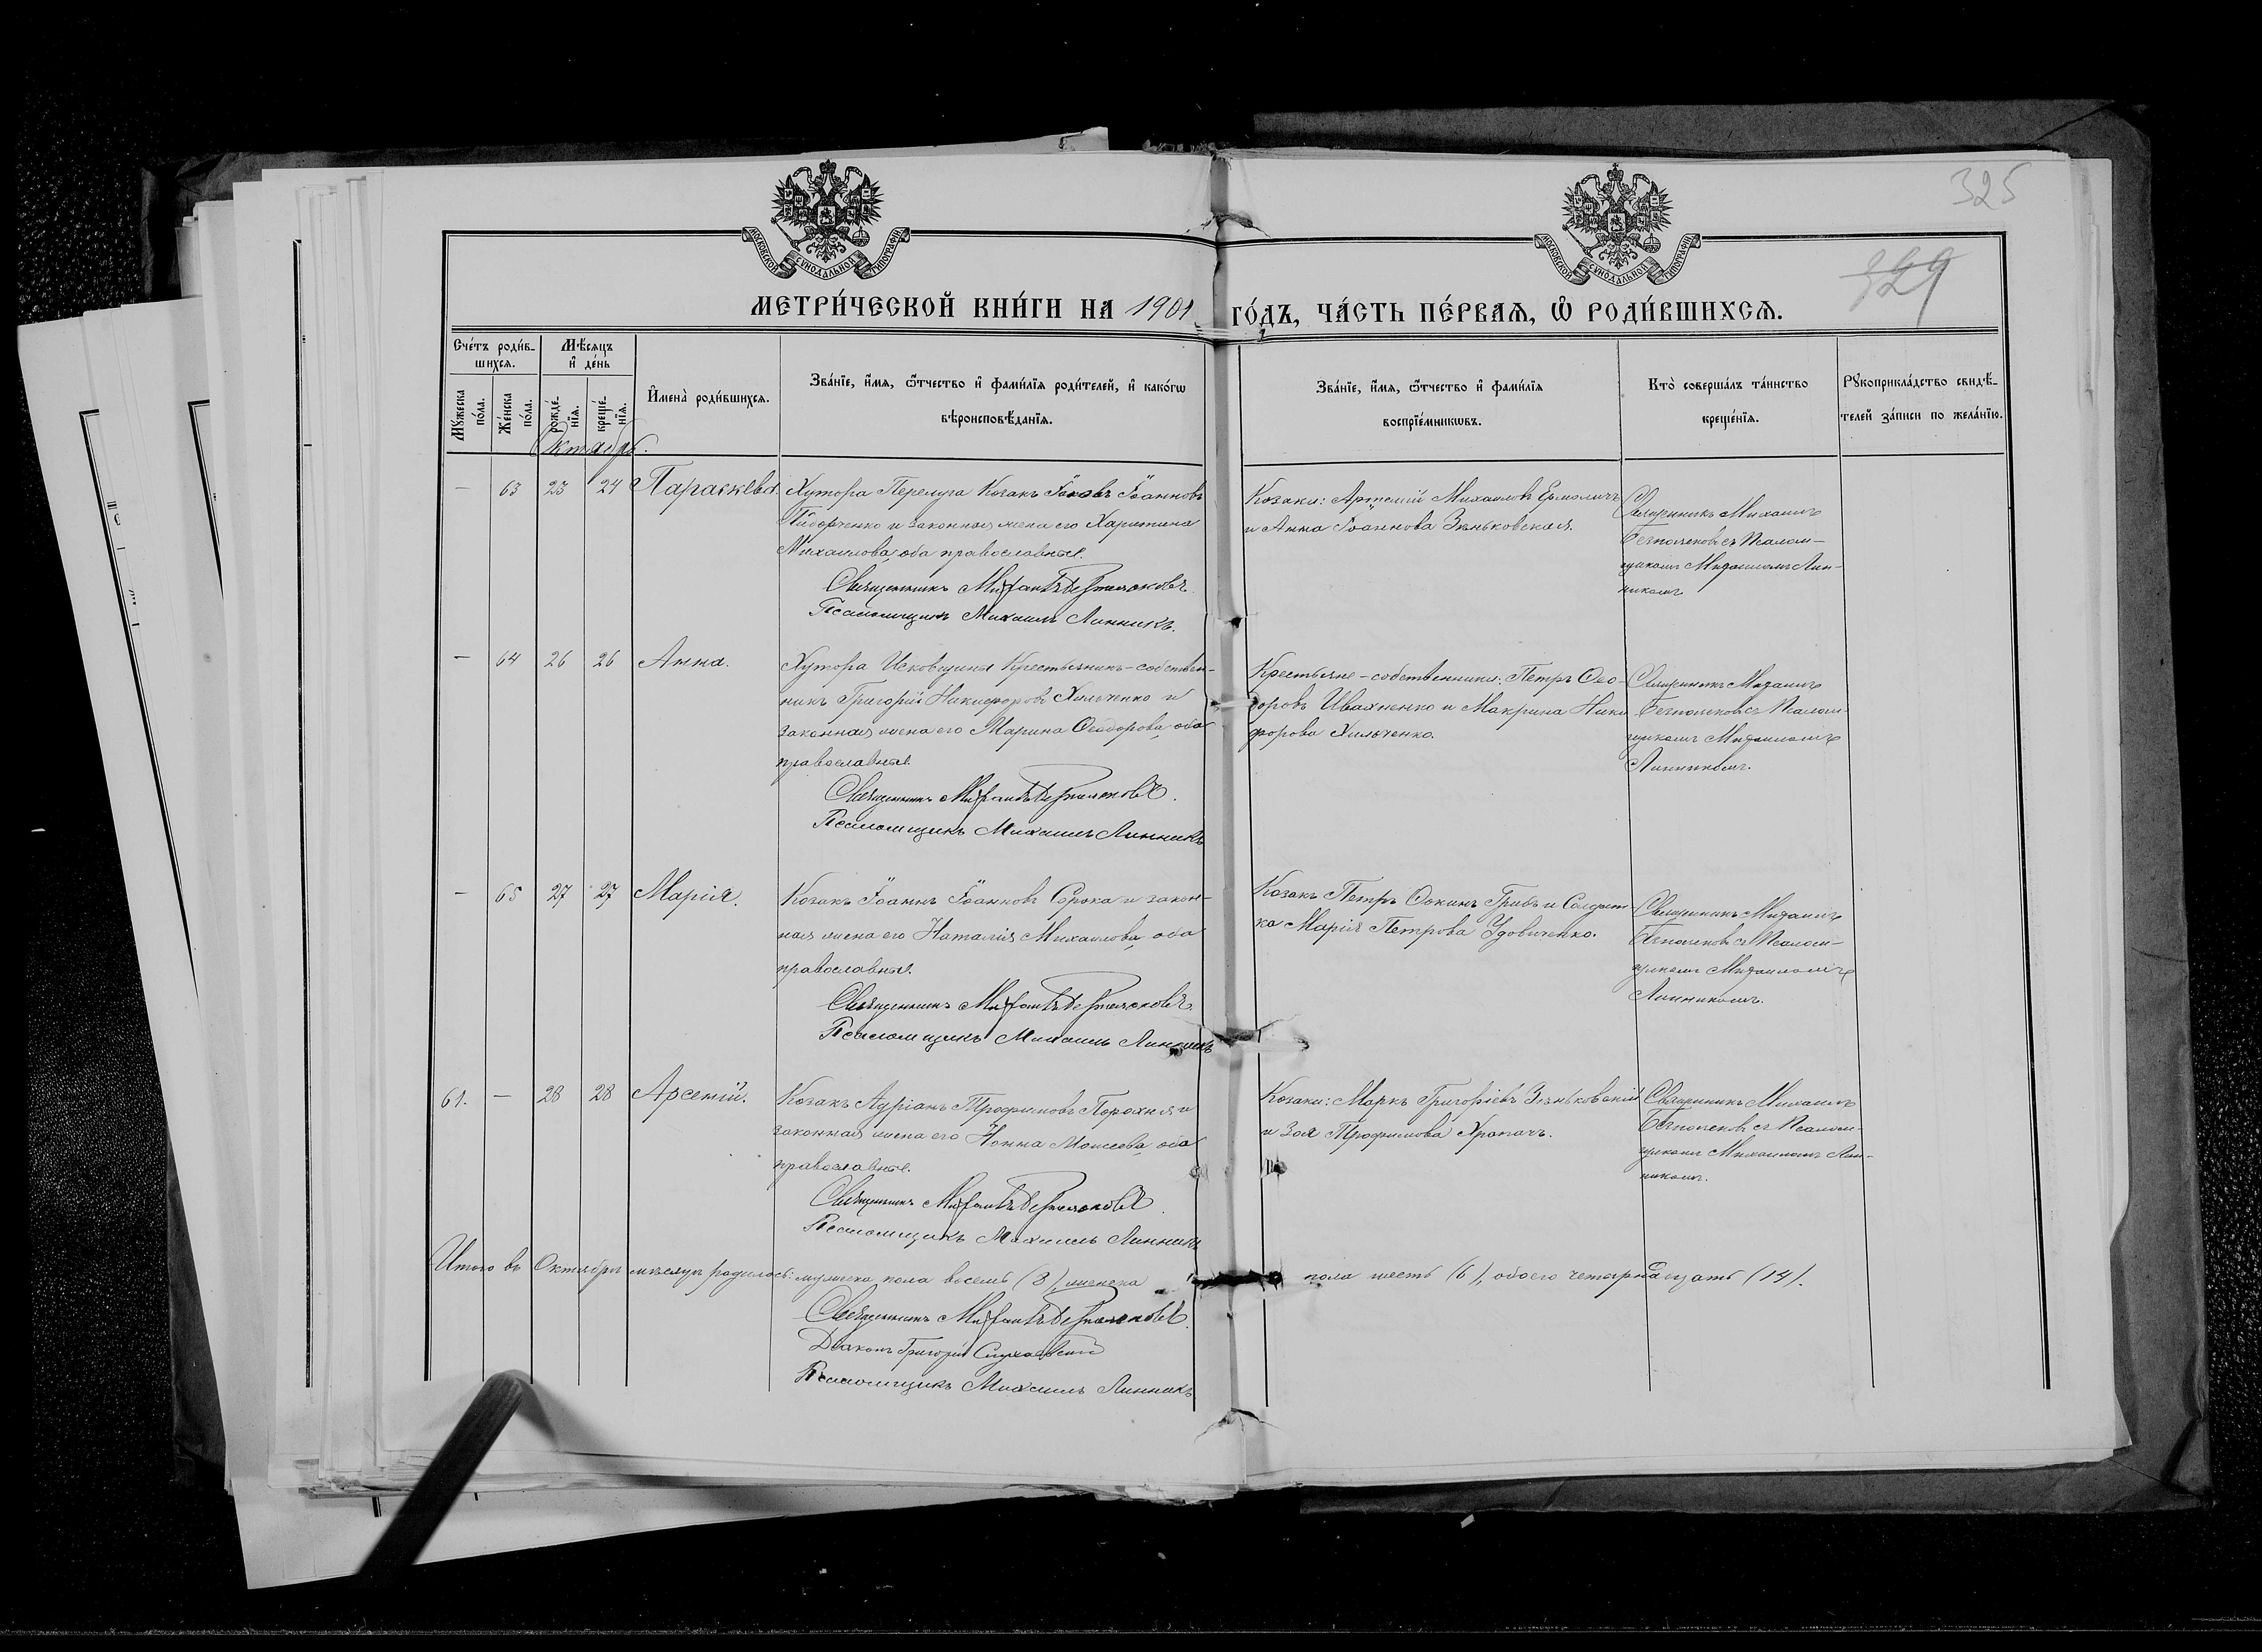 325
329
МОСКОВСКОЙ СѴНОДАЛЬНОЙ ТИПОГРАФІИ
МОСКОВСКОЙ СѴНОДАЛЬНОЙ ТИПОГРАФІИ
МЕТРИ́ЧЕСКОЙ КНИ́ГИ НА 1901 ГО́ДЪ, ЧА́СТЬ ПЕ́РВАѦ, Ѡ҆ РОДИ́ВШИХСѦ.
Сче́тъ роди́в-
шихсѧ.
Мꙋ́жеска по́ла.
Же́нска по́ла.
Мѣ́сѧцъ
и҆ де́нь
рожде́-
нїѧ.
креще́-
нїѧ.
И҆мена̀ роди́вшихсѧ.
Зва́нїе, и҆́мѧ, ѻ҆́тчество и҆ фами́лїѧ роди́телей, и҆ како́гѡ
вѣроисповѣ́данїѧ.
Зва́нїе, и҆́мѧ, ѻ҆́тчество и҆ фами́лїѧ
воспрїе́мникѡвъ.
Кто̀ соверша́лъ та́инство
креще́нїѧ.
Рꙋкоприкла́дство свидѣ́-
телей за́писи по жела́нїю.
Октябрь.
— 63 23 24 Параскева.
Хутора Перелуга Козакъ Іаковъ Іоанновъ
и законная жена его Харитина
Михаилова, оба православные.
Священникъ Михаилъ
Псаломщикъ Михаилъ Линникъ.
Козаки: Артемій Михаиловъ Ермоличъ
и Анна Іоаннова Зѣньковская.
Священникъ Михаилъ
съ Псалом-
щикомъ Михаиломъ Лин-
никомъ
— 64 26 26 Анна.
Хутора Исковщины Крестьянинъ-собствен-
никъ Григорій Никифоровъ Хильченко и
законная жена его Марина Ѳеодорова, оба
православные.
Священникъ Михаилъ
Псаломщикъ Михаилъ Линникъ
Крестьяне-собственники: Петръ Ѳео-
доровъ Ивахненко и Макрина Ники-
форова Хильченко.
Священникъ Михаилъ
съ Псалом-
щикомъ Михаиломъ
Линникомъ.
— 65 27 27 Марія.
Козакъ Іоаннъ Іоанновъ Сорока и закон-
ная жена его Наталія Михаилова, оба
православные.
Священникъ Михаилъ
Псаломщикъ Михаилъ Линникъ
Козакъ Петръ Ѳокинъ Грибъ и Солдат-
ка Марія Петрова Удовиченко.
Священникъ Михаилъ
съ Псалом-
щикомъ Михаиломъ
Линникомъ.
61. — 28 28 Арсеній.
Козакъ Адріанъ Трофимовъ Порохня и
законная жена его Нонна Моисеева, оба
православные.
Священникъ Михаилъ
Псаломщикъ Михаилъ Линникъ
Козаки: Маркъ Григоріевъ Зѣньковскій
и Зоя Трофимова Храпачъ.
Священникъ Михаилъ
съ Псалом-
щикомъ Михаиломъ Лин-
никомъ.
Итого въ Октябрѣ мѣсяцѣ родилось: мужеска пола восемь (8), женска пола шесть (6), обоего четырнадцать (14).
Священникъ Михаилъ
Діаконъ Григорій
Псаломщикъ Михаилъ Линникъ